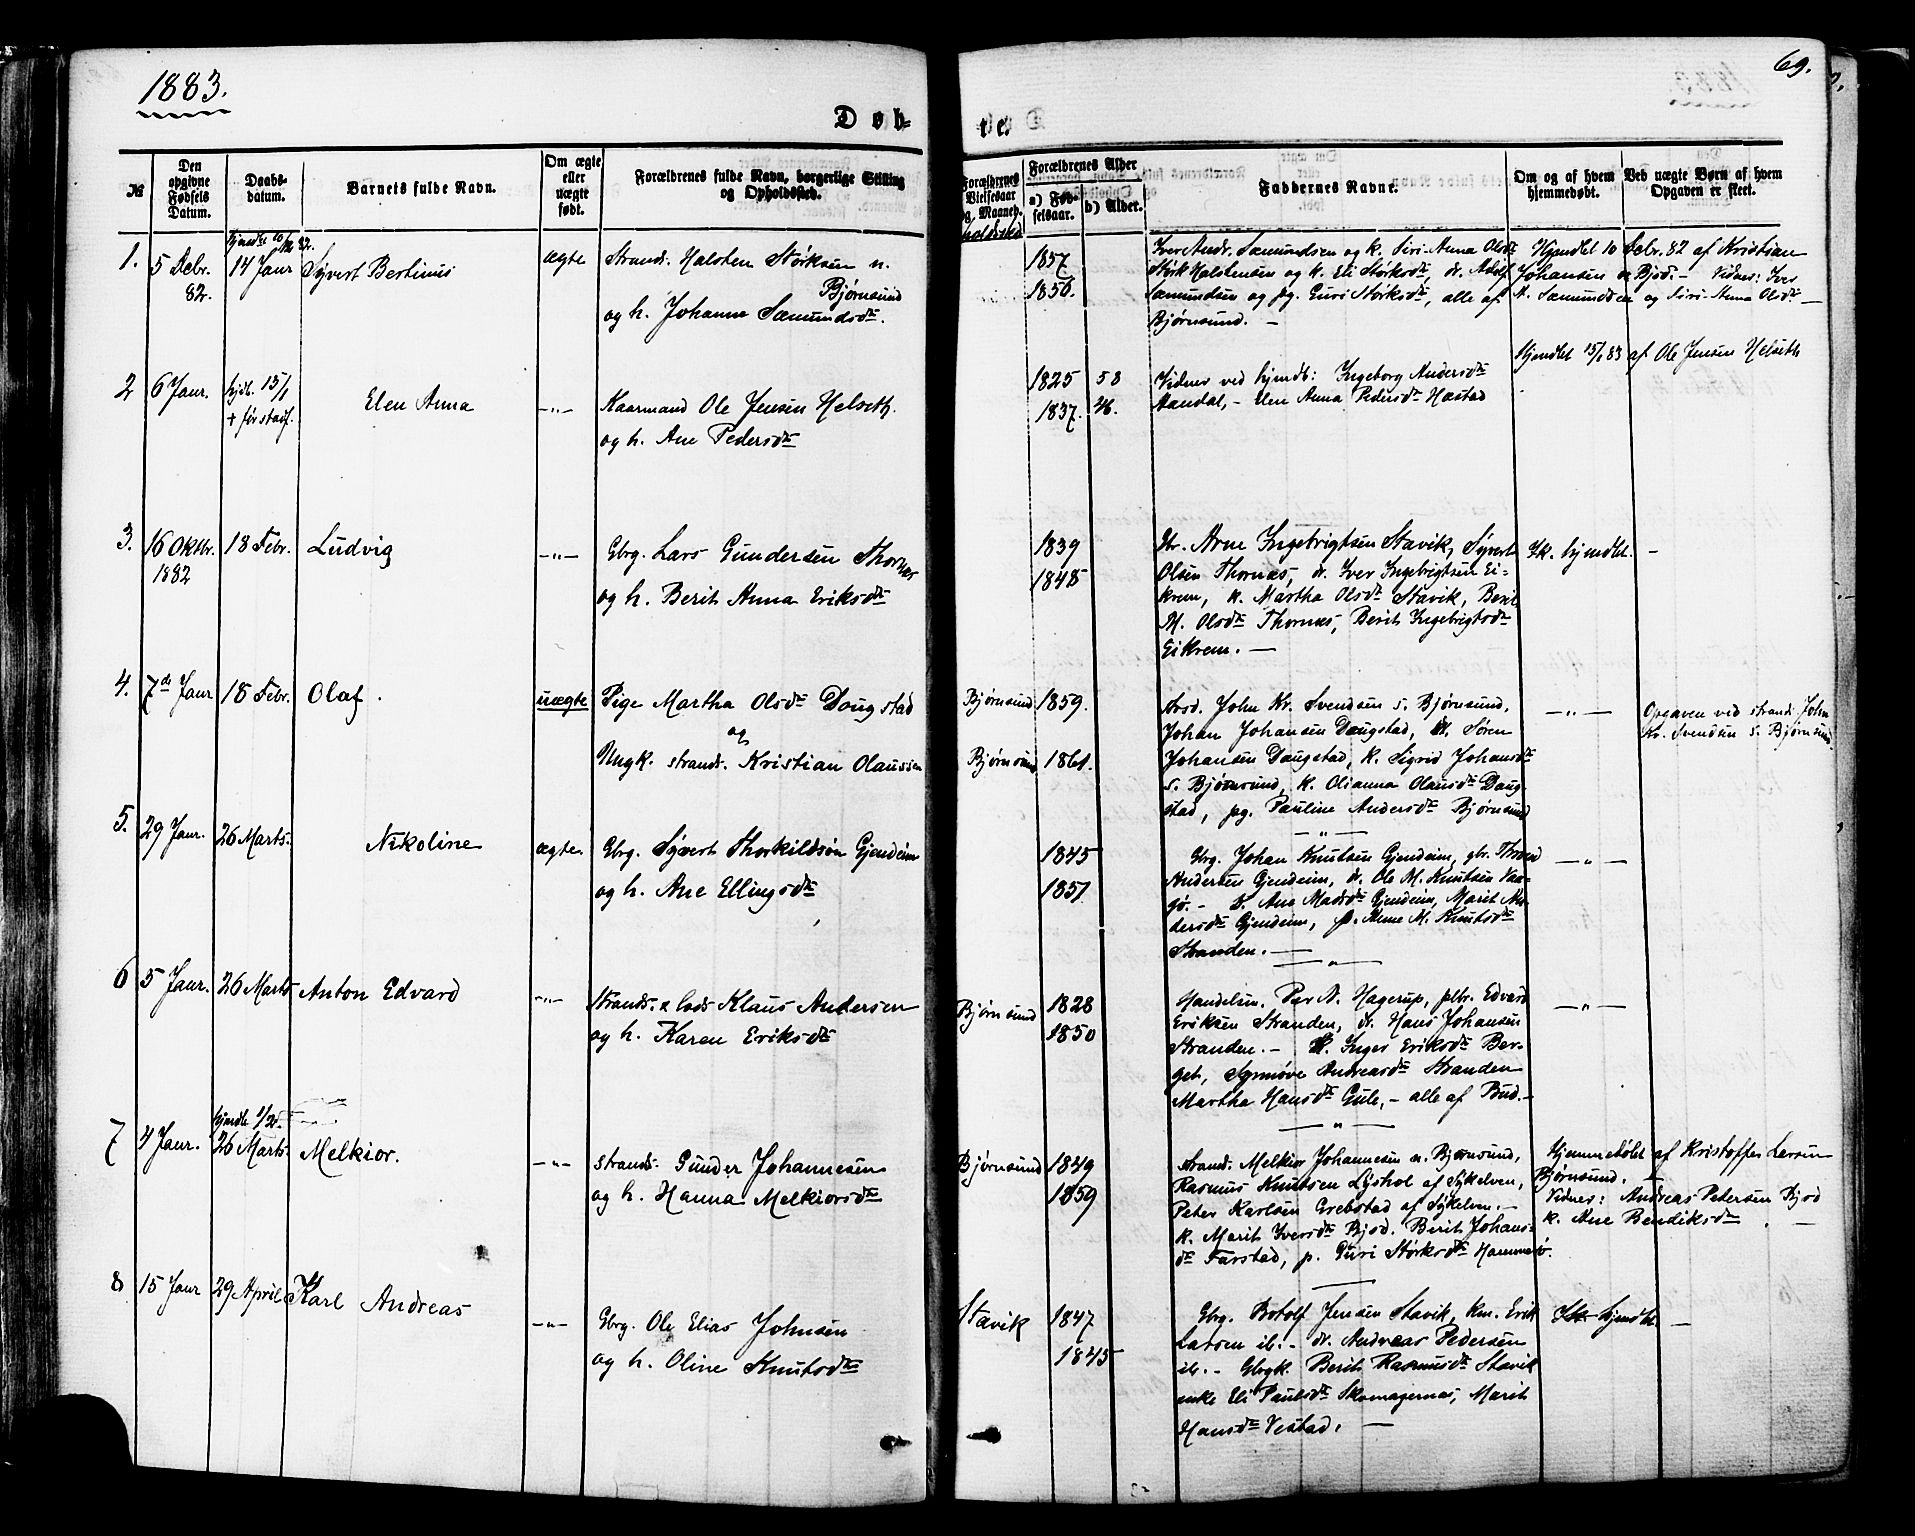 1883.
69.
Døb-
te.
№
Den opgivne Fødsels Datum.
Daabs-datum.
Barnets fulde Navn.
Om ægte eller uægte født.
Forældrenes fulde Navn, borgerlige Stilling og Opholdssted.
Forældrenes Vielsesaar og Maaned.
Forældrenes Alder
a) Fød-selsaar.
b) Alder.
Faddernes Navne.
Om og af hvem hjemmedøbt.
Ved uægte Børn af hvem Opgaven er skeet.
1.
5 Debr. 82.
14 Janr
Syvert Bertinus
ægte
Strands. Halsten Størksen n. Bjørnsund
og h. Johanna Sæmundsdtr.
1857.
1856.
Iver Andr. Sæmundsen og k. Siri-Anna Olsdtr
Størk Halstensen og k. Eli Størksdtr, dr. Adolf
Sæmundsen og pg. Guri Størksdtr, alle af
Bjørnsund. —
Hjmdbt 10 Debr. 82 af Kristian
Johansen Bjsd. – Vidner: Iver
A. Sæmundsen og Siri-Anna Olsdtr —
2
6 Janr.
hjdb. 15/1
+ før stadf.
Elen Anna
—"—
Kaarmand Ole Jensen Helseth.
og h. Ane Pedersdtr
1825 58
1837. 46.
Vidner ved hjmdb: Ingeborg Andersdtr
Aandal, – Elen Anna Pedersdtr Hastad
Hjemdbt 15/1 83 af Ole Jensen Helseth
3.
16 Oktbr. 1882
18 Febr.
Ludvig
—"—
Gbrg. Lars Gundersen Thornæs
og h. Berit Anna Eriksdtr
1839
1848
Gbr. Arne Ingebrigtsen Stavik, Syvert
Olsen Thornæs, dr. Iver Ingebrigtsen Ei-
krem, k. Martha Olsdtr Stavik, Berit
M. Olsdtr Thornæs, Berit Ingebrigtsdtr
Eikrem. —
Ik. hjmdbt. —
4.
7de Janr
18 Febr.
Olaf.
uægte
Pige Martha Olsdtr Dougstad
og
Ungk. strands. Kristian Olaussen
Bjørnsund 1859.
Bjørnsund 1861.
John Kr. Svendsen s. Bjørnsund,
Johan Johansen Dougstad, Søren
Johansen Dougstad, k. Sigrid Johansdtr
s. Bjørnsund, k. Olianna Olausdtr Doug-
stad, pg. Pauline Andersdtr Bjørnsund
—"—
Opgaven ved strands. John
Kr. Svendsen s. Bjørnsund.
5.
29 Janr.
26 Marts.
Nikoline
ægte.
Gbrg. Syvert Thorkildsøn Gjendeim
og h. Ane Ellingsdtr
1845
1857
Gbrg. Johan Knutsen Gjendeim, gbr. Thrond
Andersen Gjendeim, dr. Ole M. Knutsen Vaa-
gø. – Ane Madsdtr Gjendeim, Marit An-
dersdtr Gjendeim, p. Anne M. Knutsdtr
Stranden. —
—"—
6
5 Janr.
26 Marts
Anton Edvard
—"—
Strands. & lods Klaus Andersen
og h. Karen Eriksdtr
Bjørnsund
1828
1850
Handelsm. Per A. Hagerup, Edvard
Eriksen Stranden, dr. Hans Johansen
Stranden. – Inger Eriksdtr Ber-
get, Synnøve Andreasdtr Stranden
Martha Hansdtr Gule, – alle af Bud. –
—"—
7
4 Janr.
26 Marts.
Melkior.
—"—
strands. Gunder Johannesen
og h. Hanna Melkiorsdtr
Bjørnsund
1849
1859
strands. Melkior Johannesen n. Bjørnsund,
Rasmus Knutsen Lyshol af Sykelven,
Peter Karlsen Grebstad af Sykelven. –
k. Marit Iversdtr Bjsd. Berit Johans-
dtr Farstad, p. Guri Størksdtr Hammerø.
Hjemmedøbt af Kristoffer Larsen
Bjørnsund.
Vidner: Andreas Petersen Bjsd
k. Ane Bendiksdtr. —
8
15 Janr
29 April
Karl Andreas
—"—
Gbrg. Ole Elias Johnsen
og h. Oline Knutsdtr
Stavik
1847
1845
Gbrg. Botolf Jensen Stavik, Erik
Larsen ib. – dr. Andreas Pedersen
ib. – Gbrgk. Berit Rasmusdtr Stavik
enke Eli Paulsdtr Skomagernæs, Marit
Hansdtr Vestad. —
Ik. hjmdbt. —